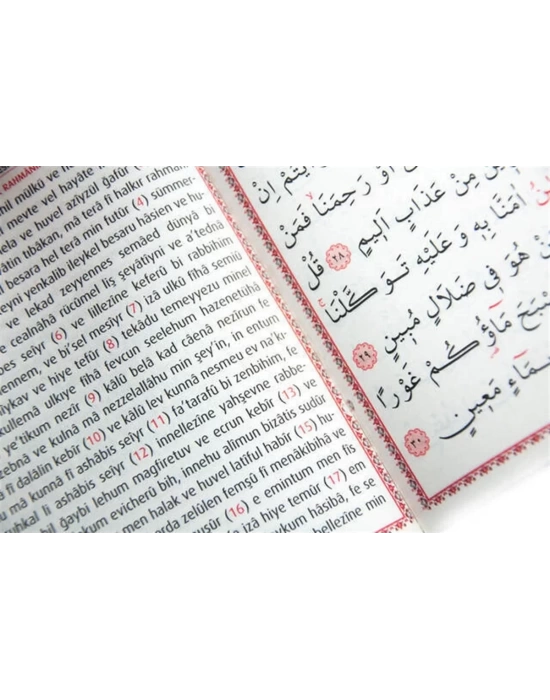 RAHMAN
mil mülkü ve
meyte vel hayâte
ela ve huvel azîyzül gafûr
âtin tıbâkan, mâ terâ fî halkır rahmâ
l besara hel terâ min futûr (4) sümmer-
eyni yenkalib ileykel besaru hâsien ve hu-
ve lekad zeyyennes semâed dünyâ bi
ve cealnâhâ rücûmel liş şeyâtîyni ve a'tednâ
bes seîyr (6) ve lillezîne keferû bi rabbihim
ennem, ve bi'sel mesîyr (7) izâ ulkû fîhâ semiû
îykav ve hiye tefûr (8) tekâdu temeyyezu minel
kullemâ ulkıye fîhâ fevcun seelehum hazenetühâ
e'tikum nezîr (9) kâlû belâ kad câenâ nezîrun fe
zebnâ ve kulnâ mâ nezzelallâhu min şey'in, in entum
â fî dalâlin kebîr (10) ve kâlû lev kunnâ nesmeu ev na'k-
mâ kunnâ fî ashâbis seîyr (11) fa'tarafû bi zenbihim, fe
uhkal li ashâbis seîyr (12) innellezîne yahşevne rabbe-
bil ğaybi lehum magfiretuv ve ecrun kebîr (13) ve
kum evicherû bih, innehu alîmun bizâtis sudûr
men halak ve huvel latîful habîr (15) hu-
arda zelûlen femşû fî menâkibihâ ve
nuşûr (16) e emintum men fis
e izâ hiye temûr (17) em
eykum hâsibâ, fe se
bellezîne min
اِنْ
اَوْ رَحِمَنَا فَمَنْ
مِنْ عَذَابٍ اَلٖيمٍ ﴿٢٨﴾ قُلْ
اٰمَنَّا بِهٖ وَعَلَيْهِ تَوَكَّلْنَا
هُوَ فٖي ضَلَالٍ مُبٖينٍ ﴿٢٩﴾
مَاؤُكُمْ غَوْرًا
مَعٖينٍ ﴿٣٠﴾